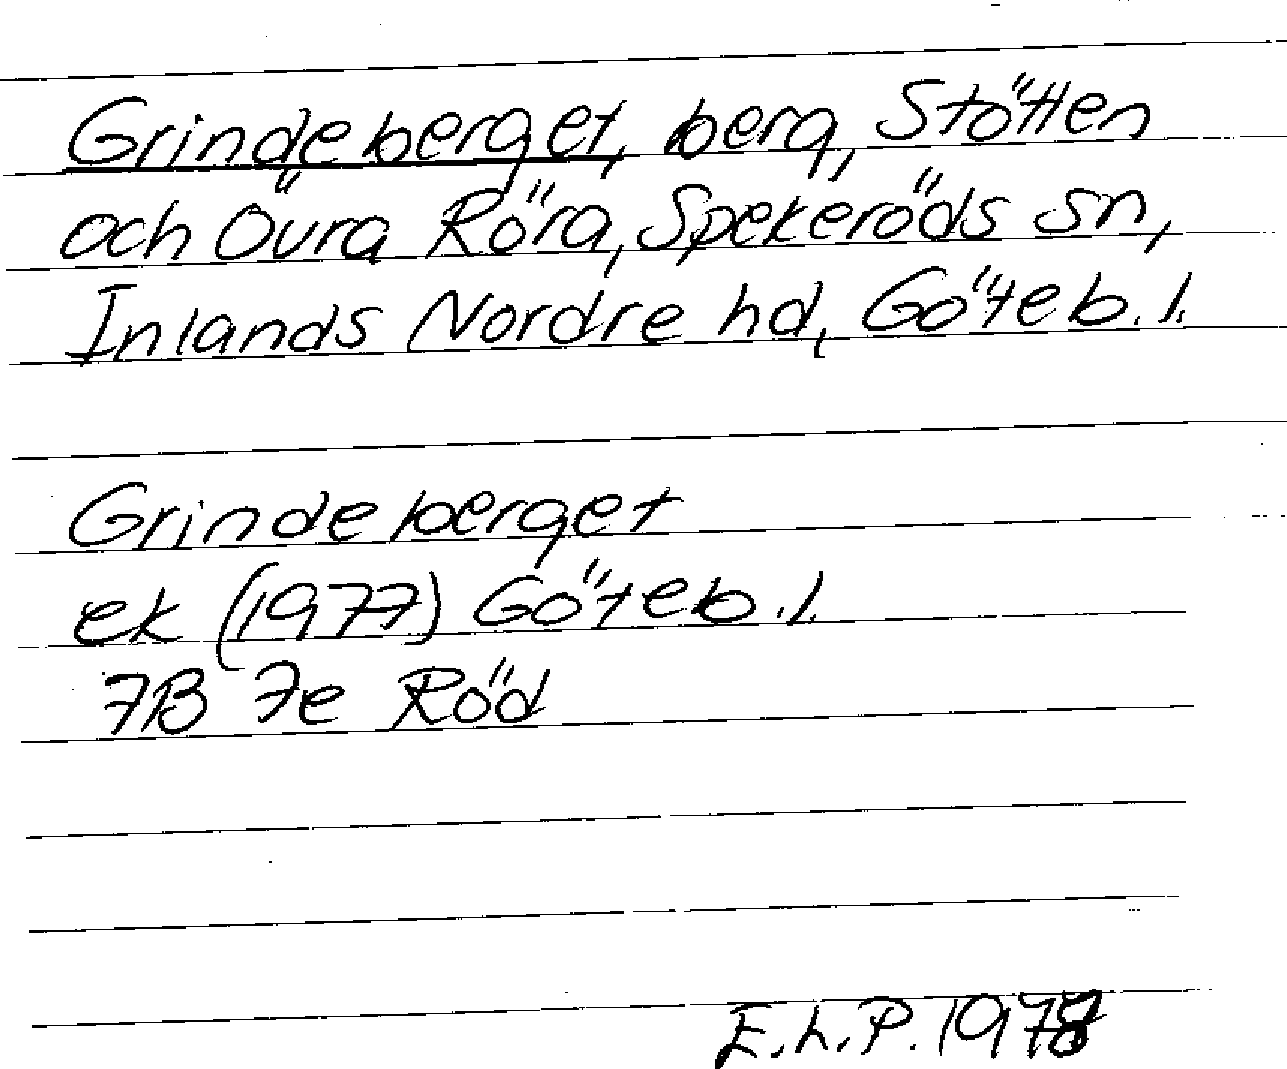 Grindeberget, berg, Stötten
och Övra Röra, Spekeröds sn,
Inlands Nordre hd, Göteb. l.
Grindeberget
ek (1977) Göteb. l.
7B 7e Röd
E.L.P. 1978